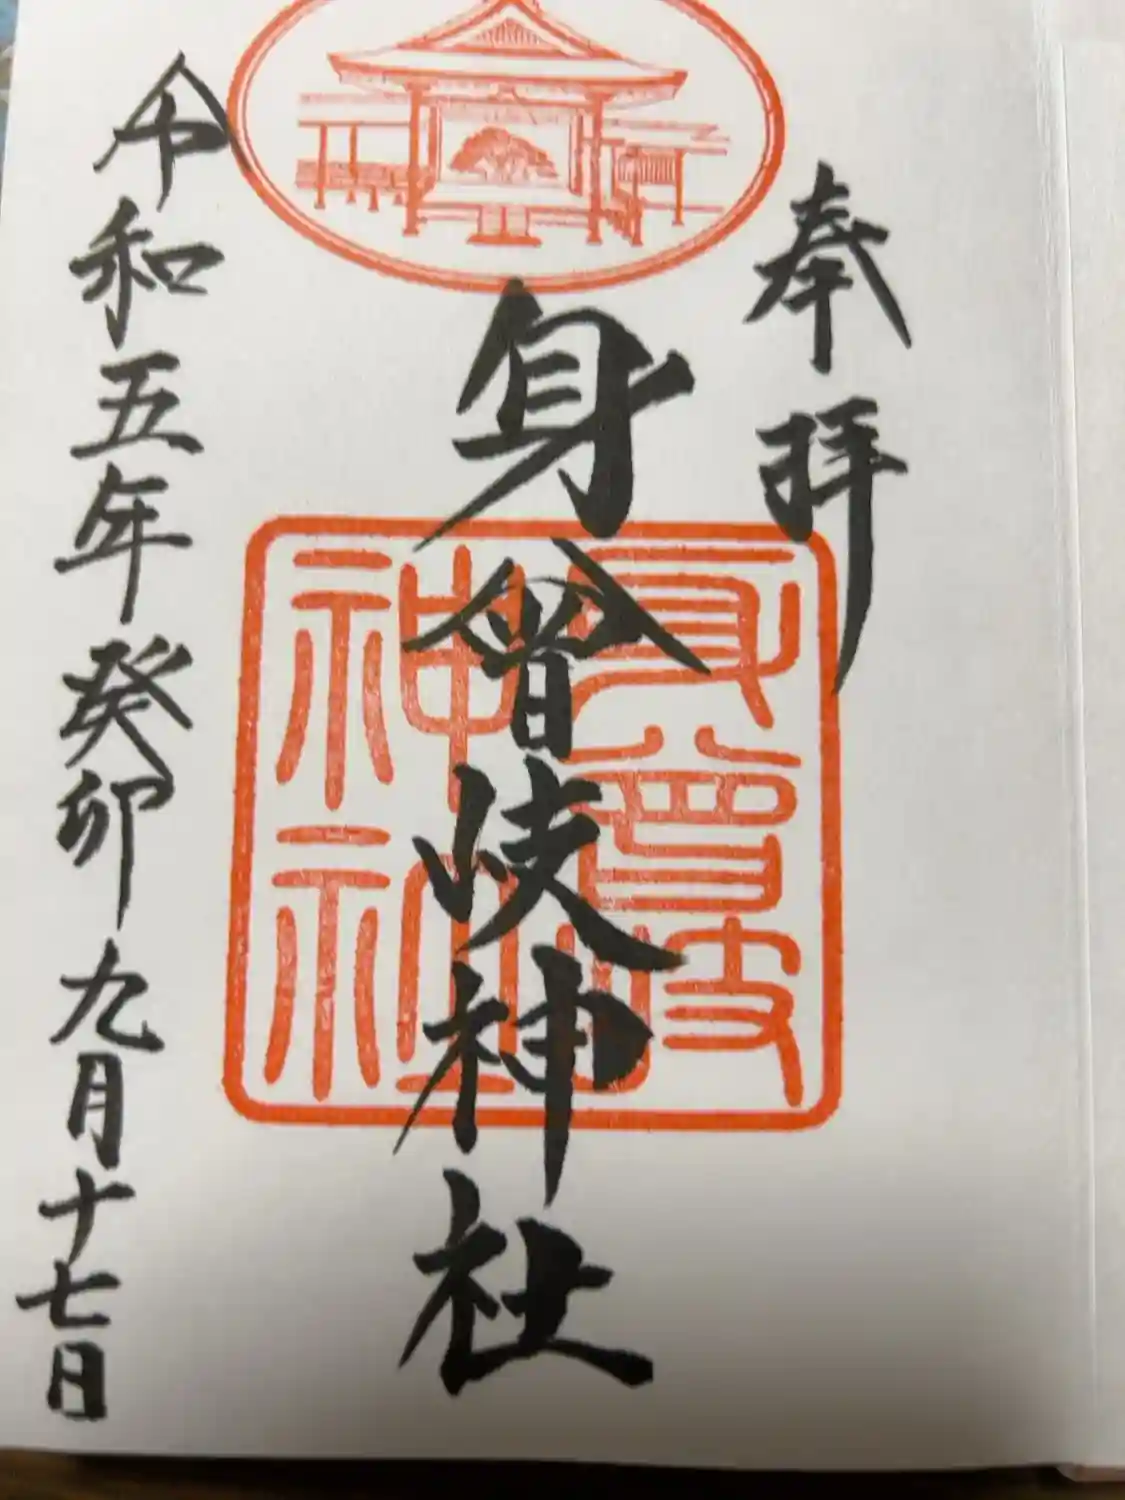 奉拝
身曾岐神社
身曾岐神社
令和五年癸卯九月十七日